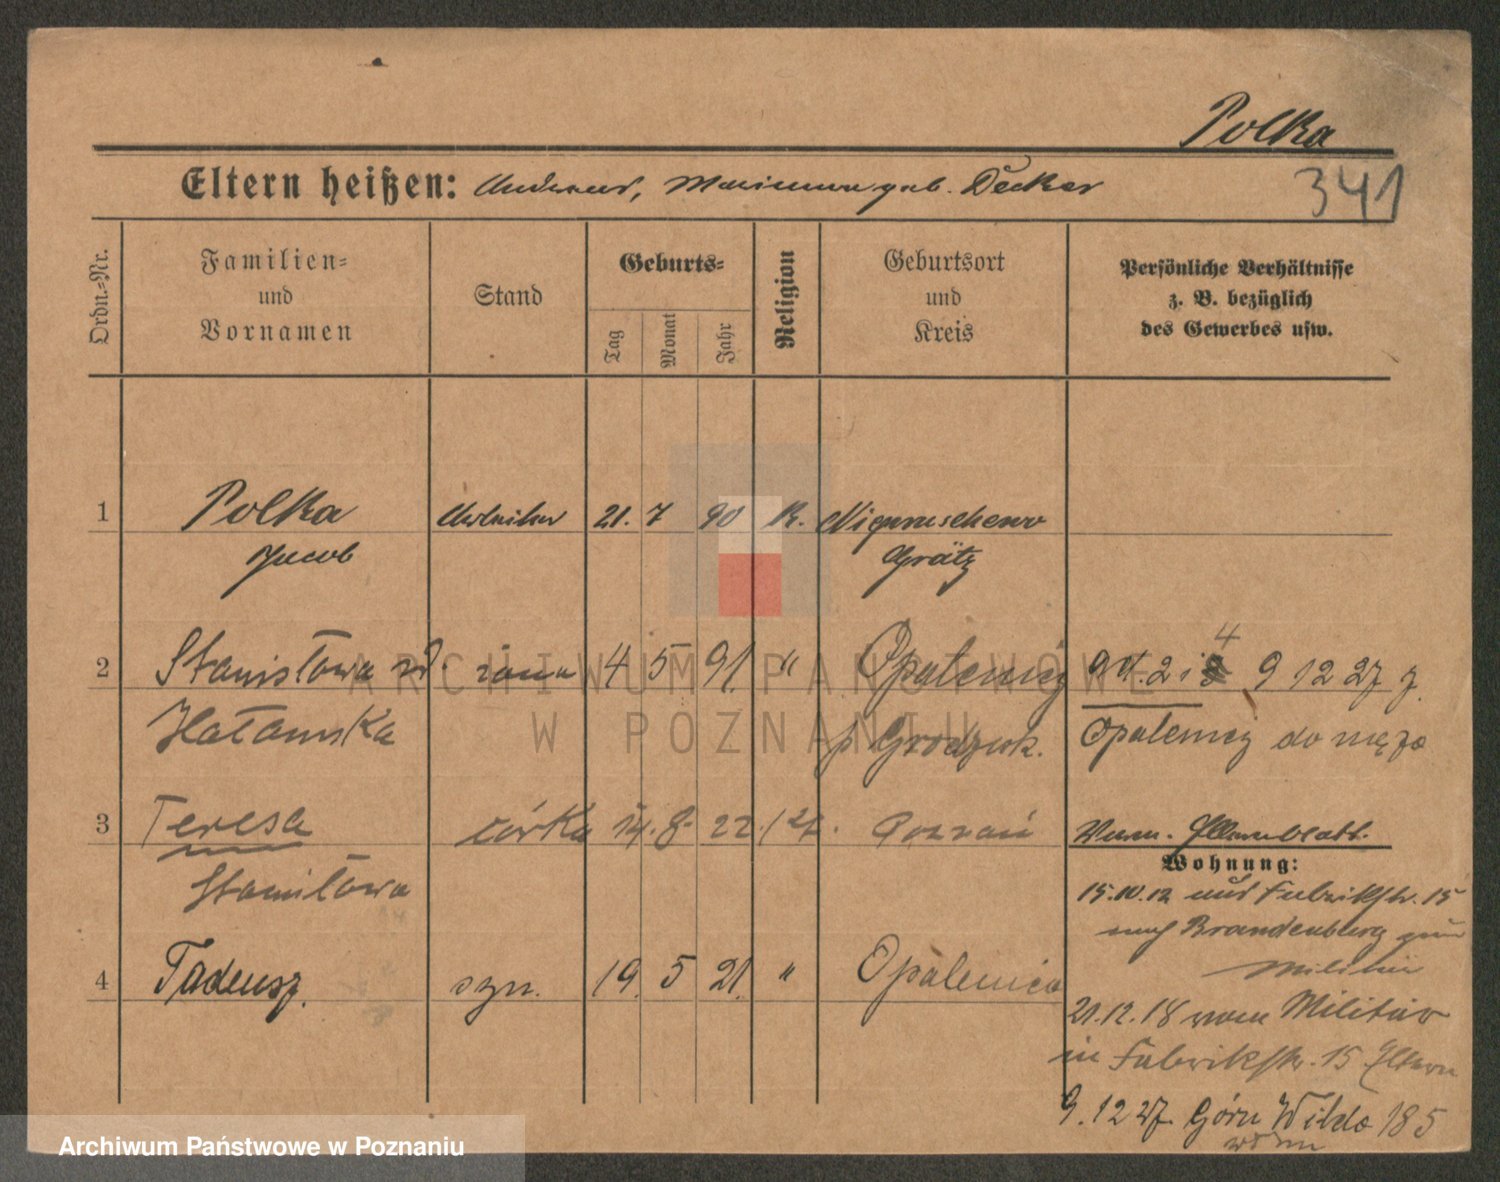 Polka
341
Eltern heißen: Andreas, Marianna geb. Decker
Ordn.-Nr.
Familien-
und
Vornamen
Stand
Geburts-
Tag
Monat
Jahr
Religion
Geburtsort
und
Kreis
Persönliche Verhältnisse
z. B. bezüglich
des Gewerbes usw.
1 Polka Arbeiter 21. 7 90 K.
Jacob Grätz
4
2 Stanisława żona 4 5 91. " Opalenicy 2 i 9 12 27 z
p Grodzisk. Opalenicy do męża
3 Teresa córka 14. 8. 22. Poznań Verm. Elternblatt.
Wohnung:
Stanisława
15.10.12 aus Fabrikstr. 15
nach Brandenburg zum
Militär
4 Tadeusz. syn. 19. 5 21. " Opalenica
21.12.18 vom Militär
in Fabrikstr. 15 Eltern
9. 12 27. Górn Wilda 185
ARCHIWUM PAŃSTWOWE
W POZNANIU
Archiwum Państwowe w Poznaniu